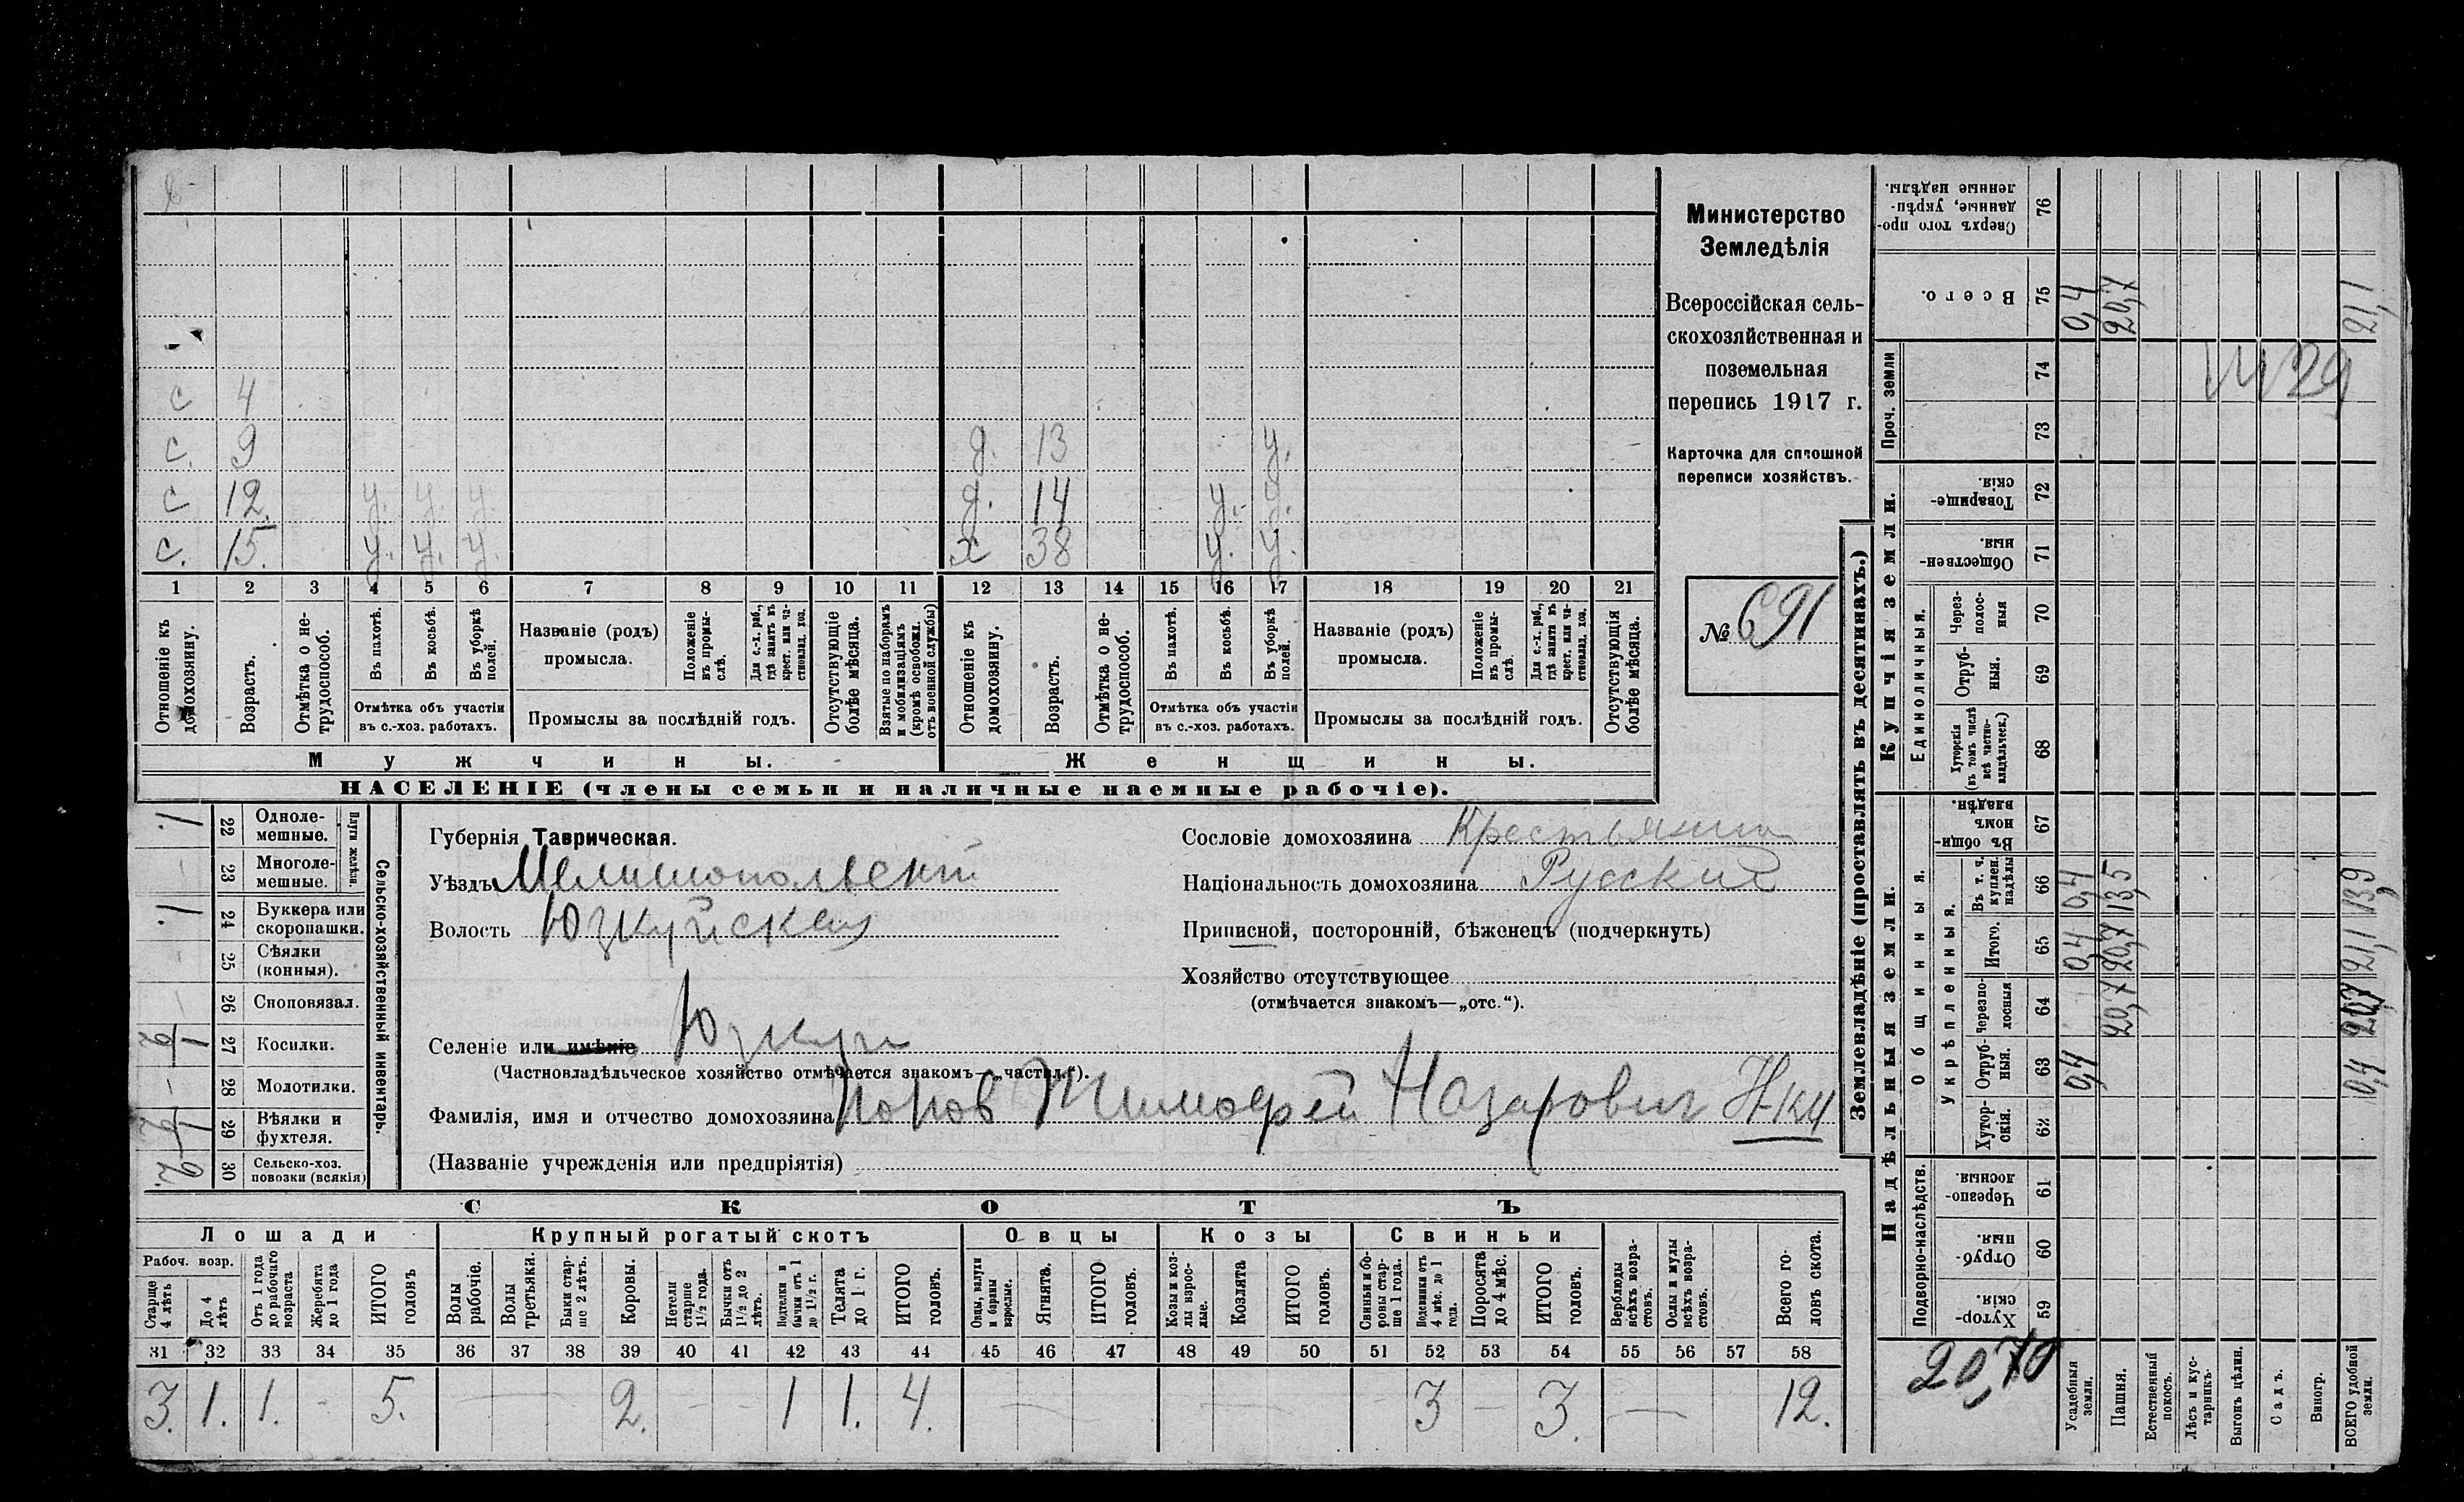 с 4
с. 9 д. 13 у.
с 12. у. у. у. д. 14 у. у.
с. 15. у. у. у. х 38 у. у.
1 2 3 4 5 6 7 8 9 10 11 12 13 14 15 16 17 18 19 20 21
Отношеніе къ домохозяину.
Возрастъ.
Отмѣтка о нетрудоспособ.
Въ пахотѣ.
Въ косьбѣ.
Въ уборкѣ полей.
Отмѣтка объ участіи въ с.-хоз. работахъ.
Названіе (родъ) промысла.
Положеніе въ промыслѣ.
Для с.-х. раб., гдѣ занятъ въ крест. или частновлад. хоз.
Промыслы за послѣдній годъ.
Отсутствующіе болѣе мѣсяца.
Взятые по наборамъ и мобилизаціямъ (кромѣ освобожд. отъ военной службы)
Отношеніе къ домохозяину.
Возрастъ.
Отмѣтка о нетрудоспособ.
Въ пахотѣ.
Въ косьбѣ.
Въ уборкѣ полей.
Отмѣтка объ участіи въ с.-хоз. работахъ.
Названіе (родъ) промысла.
Положеніе въ промыслѣ.
Для с.-х. раб., гдѣ занята въ крест. или частновлад. хоз.
Промыслы за послѣдній годъ.
Отсутствующія болѣе мѣсяца.
Мужчины. Женщины.
НАСЕЛЕНІЕ (члены семьи и наличные наемные рабочіе).
Министерство
Земледѣлія
Всероссійская сель-
скохозяйственная и
поземельная
перепись 1917 г.
Карточка для сплошной
переписи хозяйствъ.
№ 691
Сельско-хозяйственный инвентарь.
Плуги желѣзн.
1 22 Одноле-мешные.
— 23 Многоле-мешные.
1 24 Буккера или скоропашки.
— 25 Сѣялки (конныя).
— 26 Сноповязал.
27 Косилки.
— 28 Молотилки.
29 Вѣялки и фухтеля.
2 30 Сельско-хоз. повозки (всякія)
Губернія Таврическая.
Уѣздъ Мелитопольскій
Волость Юзкуйская
Селеніе или имѣніе Юзкуи
(Частновладѣльческое хозяйство отмѣчается знакомъ—„частвл.“).
Фамилія, имя и отчество домохозяина Попов Тимофей Назарович
(Названіе учрежденія или предпріятія)
Сословіе домохозяина Крестьянин
Національность домохозяина Русский
Приписной, посторонній, бѣженецъ (подчеркнуть)
Хозяйство отсутствующее
(отмѣчается знакомъ—„отс.“).
СКОТЪ
Лошади Крупный рогатый скотъ Овцы Козы Свиньи
Рабоч. возр.
Старше 4 лѣтъ
До 4 лѣтъ
Отъ 1 года до рабочаго возраста
Жеребята до 1 года
ИТОГО головъ
Волы рабочіе.
Волы третьяки.
Быки старше 2 лѣтъ.
Коровы.
Нетели старше 1½ года.
Бычки отъ 1½ до 2 лѣтъ.
Подтелки и бычки отъ 1 до 1½ г.
Телята до 1 г.
ИТОГО головъ.
Овцы, валухи и бараны взрослые.
Ягнята.
ИТОГО головъ.
Козы и козлы взрослые.
Козлята
ИТОГО головъ.
Свиньи и боровы старше 1 года.
Подсвинки отъ 4 мѣс. до 1 года.
Поросята до 4 мѣс.
ИТОГО головъ.
Верблюды всѣхъ возрастовъ.
Ослы и мулы всѣхъ возрастовъ.
Всего головъ скота.
31 32 33 34 35 36 37 38 39 40 41 42 43 44 45 46 47 48 49 50 51 52 53 54 55 56 57 58
3. 1. 1. — 5. — 2. — — 1 1. 4. — — 3 — 3. — 12.
Землевладѣніе (проставлять въ десятинахъ.)
Надѣльныя земли. Купчія земли. Проч. земли
Подворно-наслѣдств.
Общинныя.
Укрѣпленныя.
Единоличныя.
Сверхъ того проданные, укрѣпленные надѣлы. 76
Всего. 75 0,4 20,7 21,1
74
73
Товарищескія. 72
Общественныя. 71
Черезполосныя 70
Отрубныя. 69
Хуторскія (въ томъ числѣ всѣ частновладѣльческ.) 68
Въ общинномъ владѣн. 67
Въ т. ч. куплен. надѣлы 66 0,4 13,5 13,9
Итого. 65 0,4 20,7 21,1
Черезполосныя 64 20,7 20,7
Отрубныя. 63 0,4 0,4
Хуторскія. 62
Черезполосныя 61
Отрубныя. 60
Хуторскія. 59
20,70
Усадебныя земли.
Пашня.
Естественный покосъ.
Лѣсъ и кустарникъ.
Выгонъ цѣлин.
Садъ.
Виногр.
ВСЕГО удобной земли.